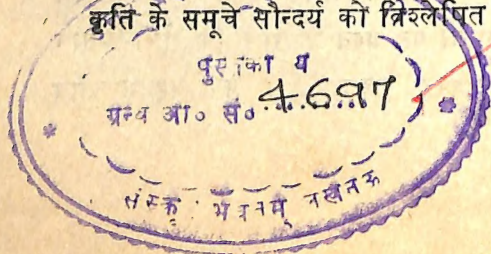 कृति के समूचे सौन्दर्य को विश्लेषित
पुस्तका य
ग्रन्थ आ० सं० 4697
संस्कृ भवनम्